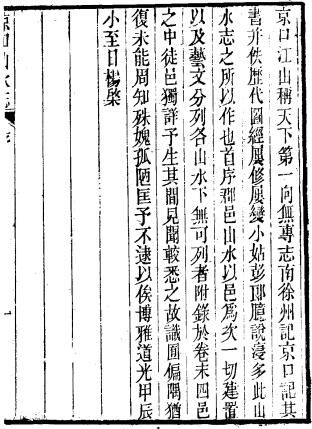 京口江山稱天下第一向無專志南徐州記京口記其
書幷佚歷代圖經屢修屢變小姑彭郎臆說寖多此山
水志之所以作也首序郡邑山水以邑爲次一切建置
以及藝文分列各山水下無可列者附錄於卷末四邑
之中徒邑獨詳予生其間見聞較悉之故識囿偏隅猶
復未能周知殊媿孤陋匡予不逮以俟博雅道光甲辰
小至日楊棨
京口山水志
序
一